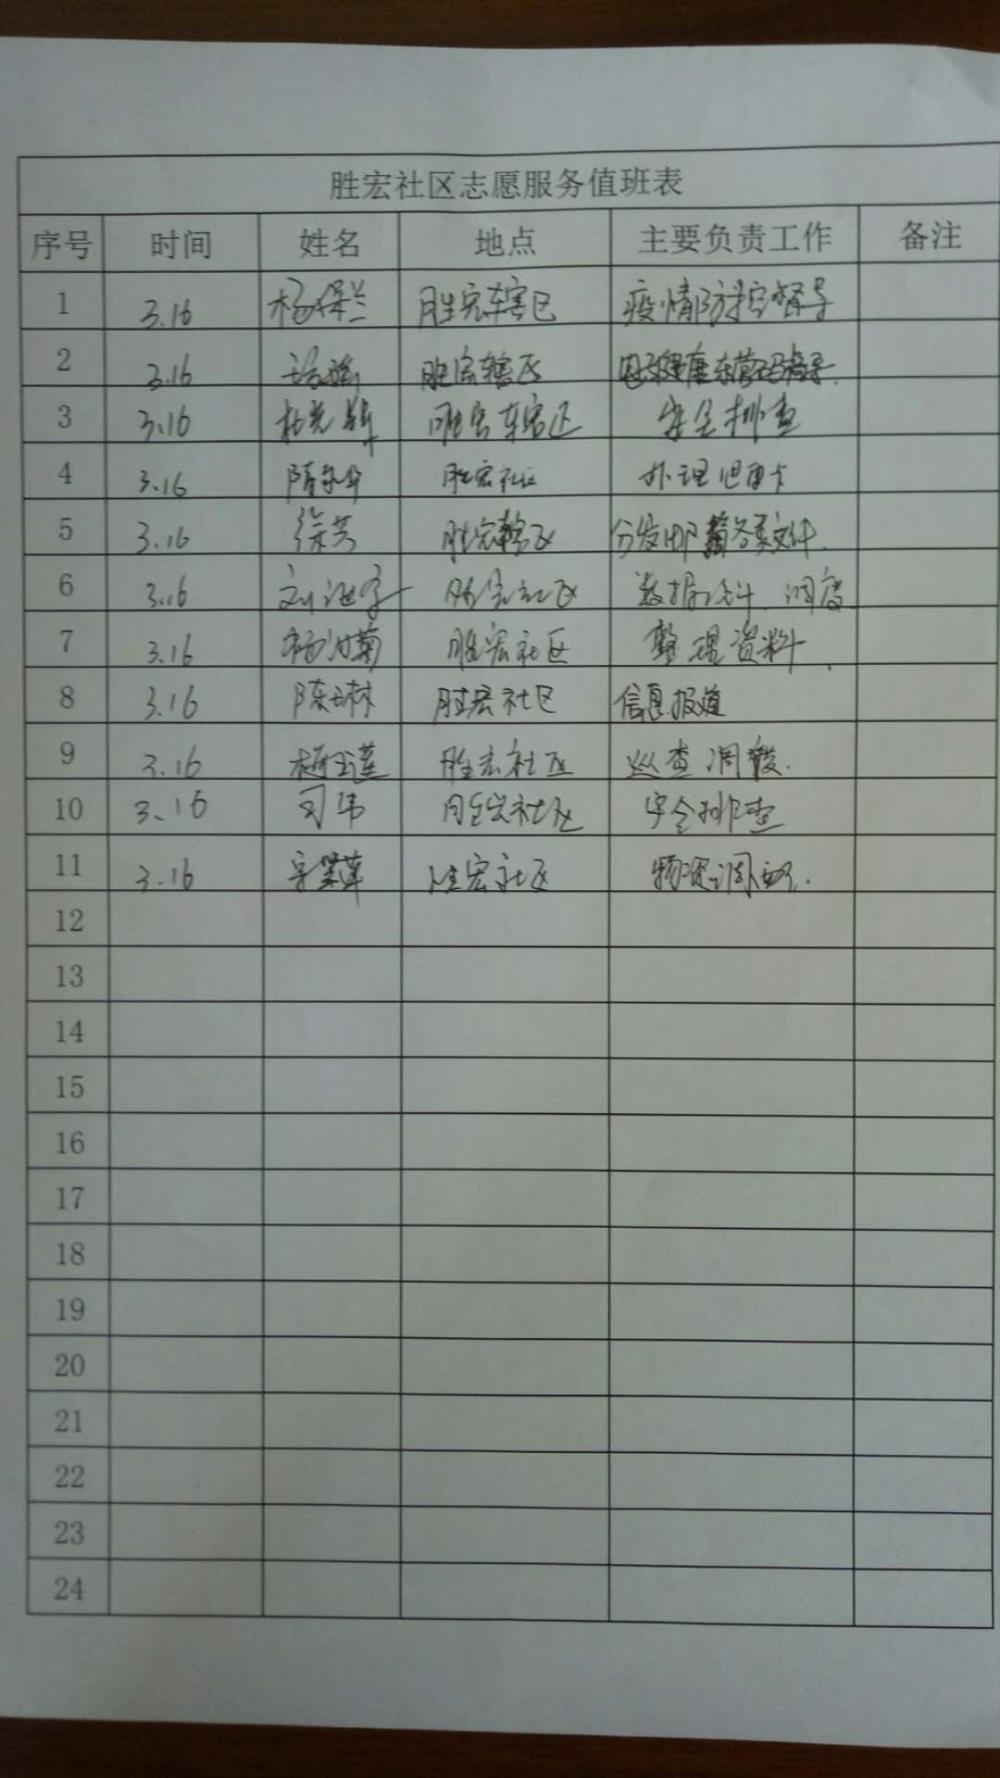 胜宏社区志愿服务值班表
序号 时间 姓名 地点 主要负责工作 备注
1 3.16 杨保兰 胜宏辖区 疫情防控督导
2 3.16 胜宏辖区
3 3.16 胜宏辖区 安全排查
4 3.16 胜宏社区 办理
5 3.16 徐芸 胜宏辖区 分发 各类文件.
6 3.16 胜宏社区 数据统计、调度
7 3.16 胜宏社区 整理资料.
8 3.16 陈玉林 胜宏社区 信息报道
9 3.16 胜宏社区 巡查调度.
10 3.16 司伟 胜宏社区 安全排查
11 3.16 胜宏社区 物资调配.
12
13
14
15
16
17
18
19
20
21
22
23
24